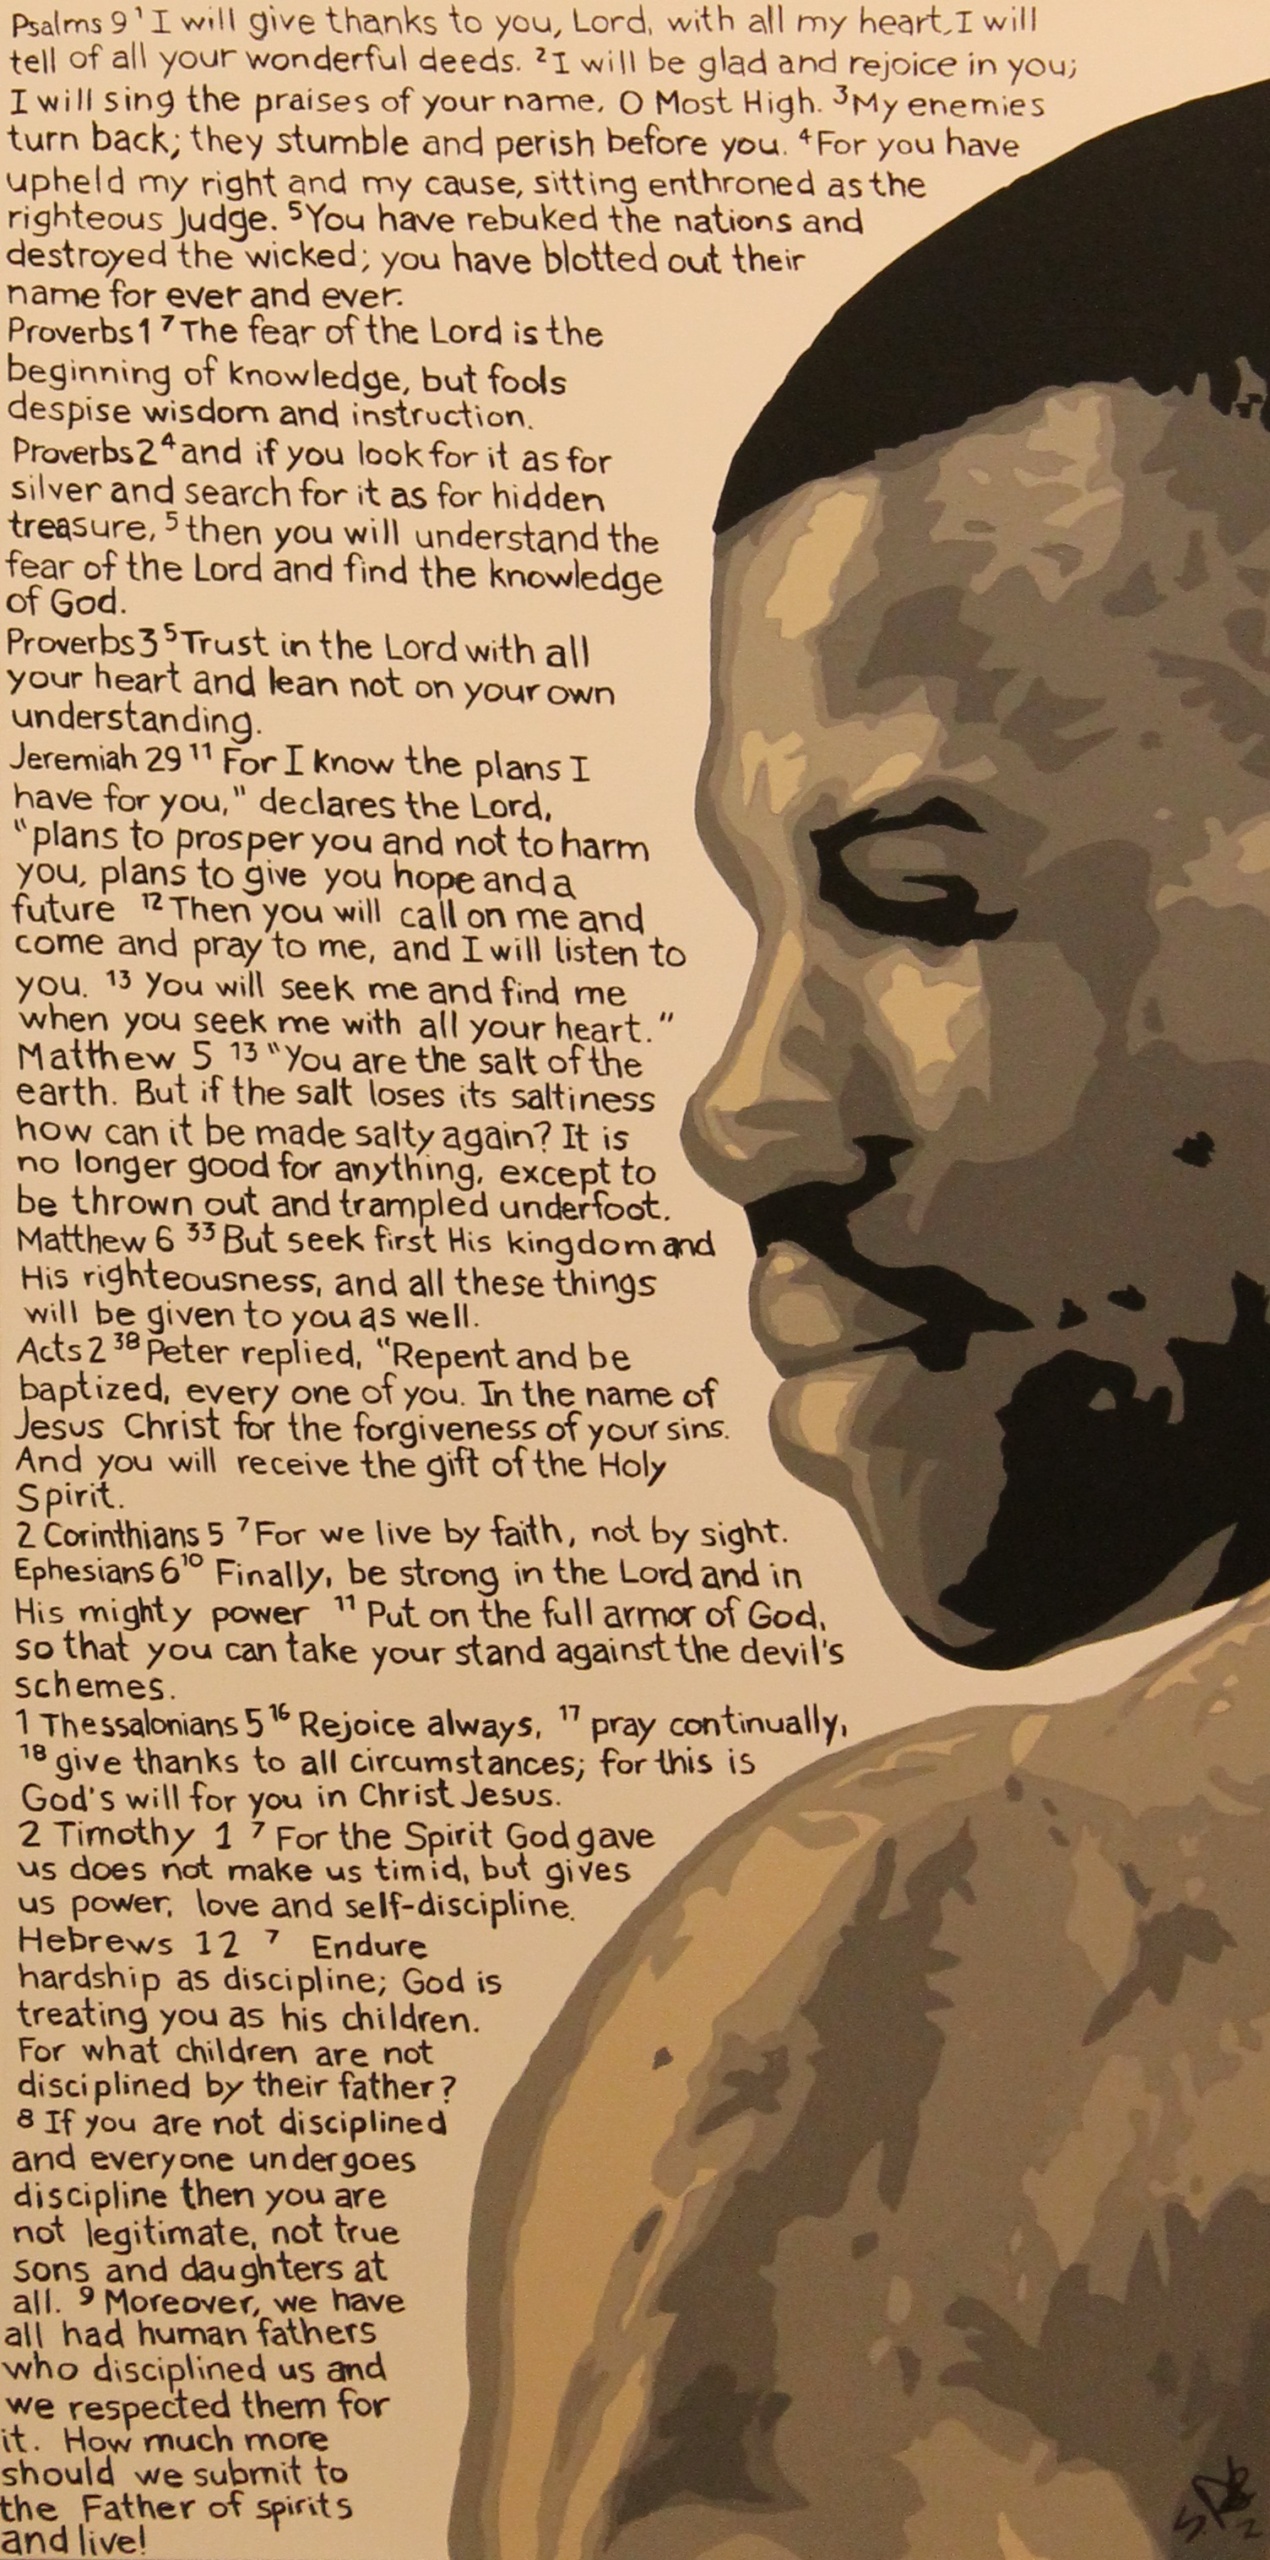 Psalms 9 ¹ I will give thanks to you, Lord, with all my heart, I will
tell of all your wonderful deeds. ²I will be glad and rejoice in you;
I will sing the praises of your name, O Most High. ³My enemies
turn back; they stumble and perish before you. ⁴For you have
upheld my right and my cause, sitting enthroned as the
righteous Judge. ⁵You have rebuked the nations and
destroyed the wicked; you have blotted out their
name for ever and ever.
Proverbs 1 ⁷ The fear of the Lord is the
beginning of knowledge, but fools
despise wisdom and instruction.
Proverbs 2 ⁴ and if you look for it as for
silver and search for it as for hidden
treasure, ⁵ then you will understand the
fear of the Lord and find the knowledge
of God.
Proverbs 3 ⁵ Trust in the Lord with all
your heart and lean not on your own
understanding.
Jeremiah 29 ¹¹ For I know the plans I
have for you," declares the Lord,
"plans to prosper you and not to harm
you, plans to give you hope and a
future ¹² Then you will call on me and
come and pray to me, and I will listen to
you. ¹³ You will seek me and find me
when you seek me with all your heart."
Matthew 5 ¹³ "You are the salt of the
earth. But if the salt loses its saltiness
how can it be made salty again? It is
no longer good for anything, except to
be thrown out and trampled underfoot.
Matthew 6 ³³ But seek first His kingdom and
His righteousness, and all these things
will be given to you as well.
Acts 2 ³⁸ Peter replied, "Repent and be
baptized, every one of you. In the name of
Jesus Christ for the forgiveness of your sins.
And you will receive the gift of the Holy
Spirit.
2 Corinthians 5 ⁷ For we live by faith, not by sight.
Ephesians 6 ¹⁰ Finally, be strong in the Lord and in
His mighty power ¹¹ Put on the full armor of God,
so that you can take your stand against the devil's
schemes.
1 Thessalonians 5 ¹⁶ Rejoice always, ¹⁷ pray continually,
¹⁸ give thanks to all circumstances; for this is
God's will for you in Christ Jesus.
2 Timothy 1 ⁷ For the Spirit God gave
us does not make us timid, but gives
us power, love and self-discipline.
Hebrews 12 ⁷ Endure
hardship as discipline; God is
treating you as his children.
For what children are not
disciplined by their father?
⁸ If you are not disciplined
and everyone undergoes
discipline then you are
not legitimate, not true
sons and daughters at
all. ⁹ Moreover, we have
all had human fathers
who disciplined us and
we respected them for
it. How much more
should we submit to
the Father of spirits
and live!